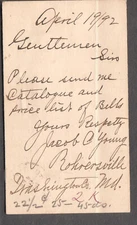 April 19/92
Gentlemen
Sirs
Please send me
Catalogue and
Price list of Bells
Yours Respetfy
Jacob C Young
Rohrersville
Washington Co, Md.